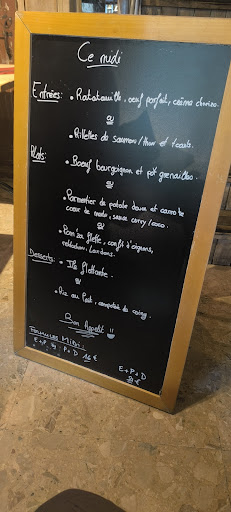 Ce midi
Entrées: • Ratatouille, oeuf parfait, crème chorizo.
ou
• Rillettes de saumon/thon et toasts.
Plats: • Boeuf bourguignon et pdt grenailles.
ou
• Parmentier de patate douce et carotte
coeur de merlu, sauce curry/coco.
ou
confit d'oignons,
Desserts: • Ile flottante.
ou
• Riz au lait, compotée de coing.
Bon Appétit
Formules Midi:
E+P ou P+D 16€
E+P+D